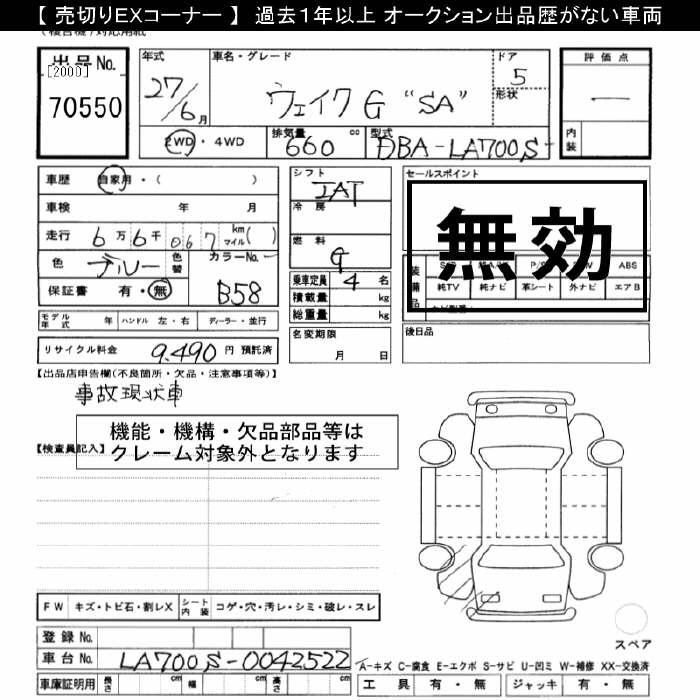 【 売切りEXコーナー 】 過去1年以上 オークション出品歴がない車両
出品No.
[2000]
70550
年式
27/6月
車名・グレード
ウェイク G "SA"
ドア
5
形状
評価点
一
内装
2WD・4WD
排気量
660 cc
型式
DBA-LA700S-
車歴 自家用・( )
車検 年 月
走行 6万6千067 km マイル( )
色 ブルー 色替 カラーNo.
保証書 有・無 B58
モデル年式 年 ハンドル 左・右 ディーラー・並行
リサイクル料金 9,490 円 預託済
シフト
IAT
冷房
燃料
G
乗車定員 4 名
積載量 kg
総重量 kg
名変期限
月 日
セールスポイント
無効
装備品 ABS
純TV 純ナビ 革シート 外ナビ エアB
後日品
【出品店申告欄(不良箇所・欠品・注意事項等)】
事故現状車
機能・機構・欠品部品等は
クレーム対象外となります
【検査員記入】
FW キズ・トビ石・割レX シート内装 コゲ・穴・汚レ・シミ・破レ・スレ
スペア
登録No.
車台No. LA700S-0042522
A-キズ C-腐食 E-エクボ S-サビ U-凹ミ W-補修 XX-交換済
車庫証明用 長さ cm 幅 cm 高さ cm
工具 有・無 ジャッキ 有・無